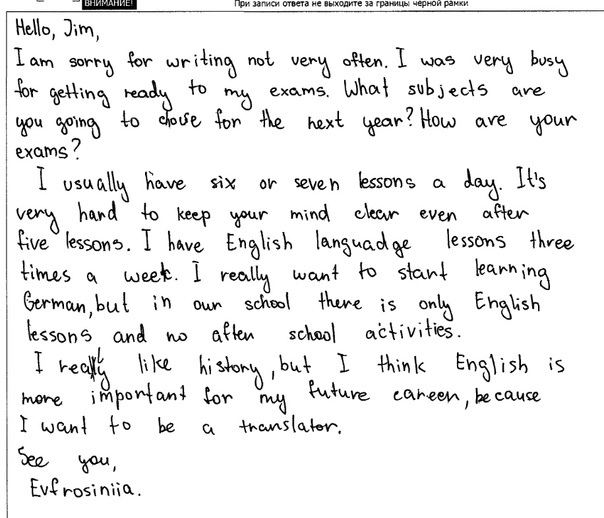 ВНИМАНИЕ!
При записи ответа не выходите за границы черной рамки
Hello, Jim,
I am sorry for writing not very often. I was very busy
for getting ready to my exams. What subjects are
you going to chouse for the next year? How are your
exams?
I usually have six or seven lessons a day. It's
very hard to keep your mind clear even after
five lessons. I have English languadge lessons three
times a week. I really want to start learning
German, but in our school there is only English
lessons and no after school activities.
I really like history, but I think English is
more important for my future career, because
I want to be a translator.
See you,
Evfrosiniia.